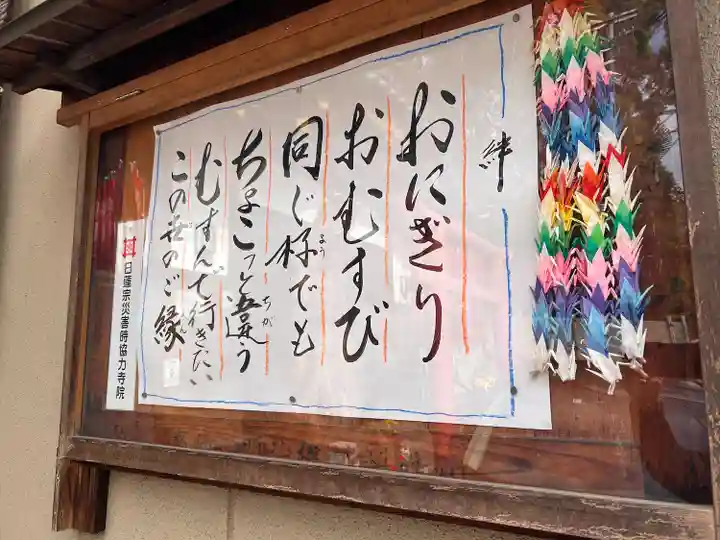 絆
おにぎり
おむすび
同じ様でも
よう
ちょこっと違う
ちが
むすんで行きたい
この世のご縁
日蓮宗災害時協力寺院